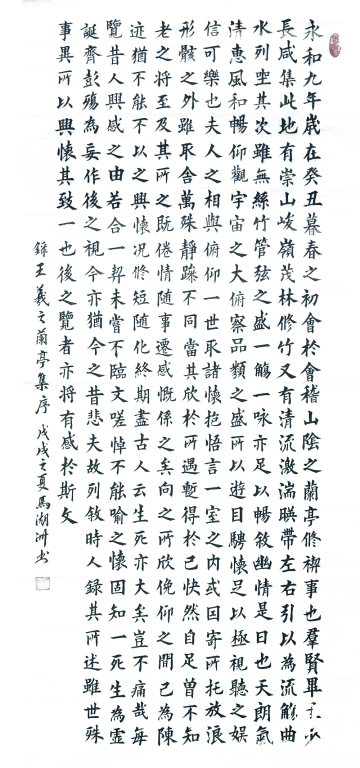 永和九年歲在癸丑暮春之初會於會稽山陰之蘭亭修禊事也羣賢畢至少
長咸集此地有崇山峻嶺茂林修竹又有清流激湍暎帶左右引以為流觴曲
水列坐其次雖無絲竹管弦之盛一觴一咏亦足以暢敘幽情是日也天朗氣
清惠風和暢仰觀宇宙之大俯察品類之盛所以遊目騁懷足以極視聽之娛
信可樂也夫人之相與俯仰一世取諸懷抱悟言一室之内或因寄所托放浪
形骸之外雖取舍萬殊靜躁不同當其欣於所遇暫得於己快然自足曾不知
老之將至及其所之既倦情隨事遷感慨係之矣向之所欣俛仰之間已為陳
迹猶不能不以之興懷況修短隨化終期盡古人云生死亦大矣豈不痛哉每
覽昔人興感之由若合一契未嘗不臨文嗟悼不能喻之懷固知一死生為虛
誕齊彭殤為妄作後之視今亦猶今之昔悲夫故列敘時人録其所述雖世殊
事異所以興懷其致一也後之覽者亦將有感於斯文
録王羲之蘭亭集序戊戌之夏馬湖洲书